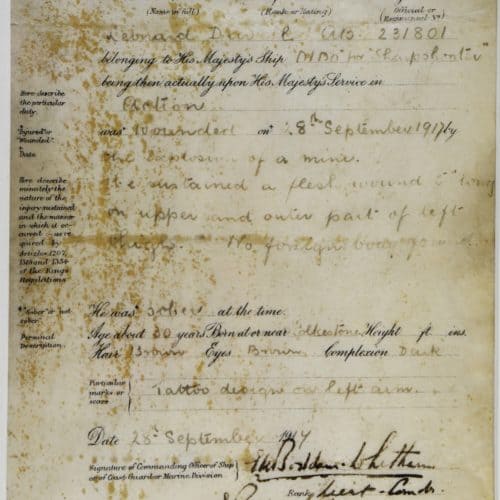 (Name in full) (Rank or Rating) Official or (Regimental No)
Leonard AB. 231801
belonging to His Majesty's Ship "
being then actually upon His Majesty's Service in
Here describe
the particular
duty.
Action.
"Injured" or
"Wounded."
Date
was Wounded on 28th September 1917 by
the explosion of a mine.
Here describe
minutely the
nature of the
injury sustained
and the manner
in which it oc-
curred
quired by
Articles 1207,
and 1334
of the King's
Regulations
He sustained a flesh wound long
on upper and outer part of left
thigh. No foreign body
"Sober or not
sober."
He was sober at the time.
Personal
Description.
Age about 30 years Born at or near Folkestone Height ft. ins.
Hair Brown Eyes Brown Complexion Dark
Particular
marks or
scars
Tattoo design on left arm.
Date 28th September 1917
Signature of Commanding Officer of Ship
or of Coast Guard or Marine Division
Rank Lieut-Comdr